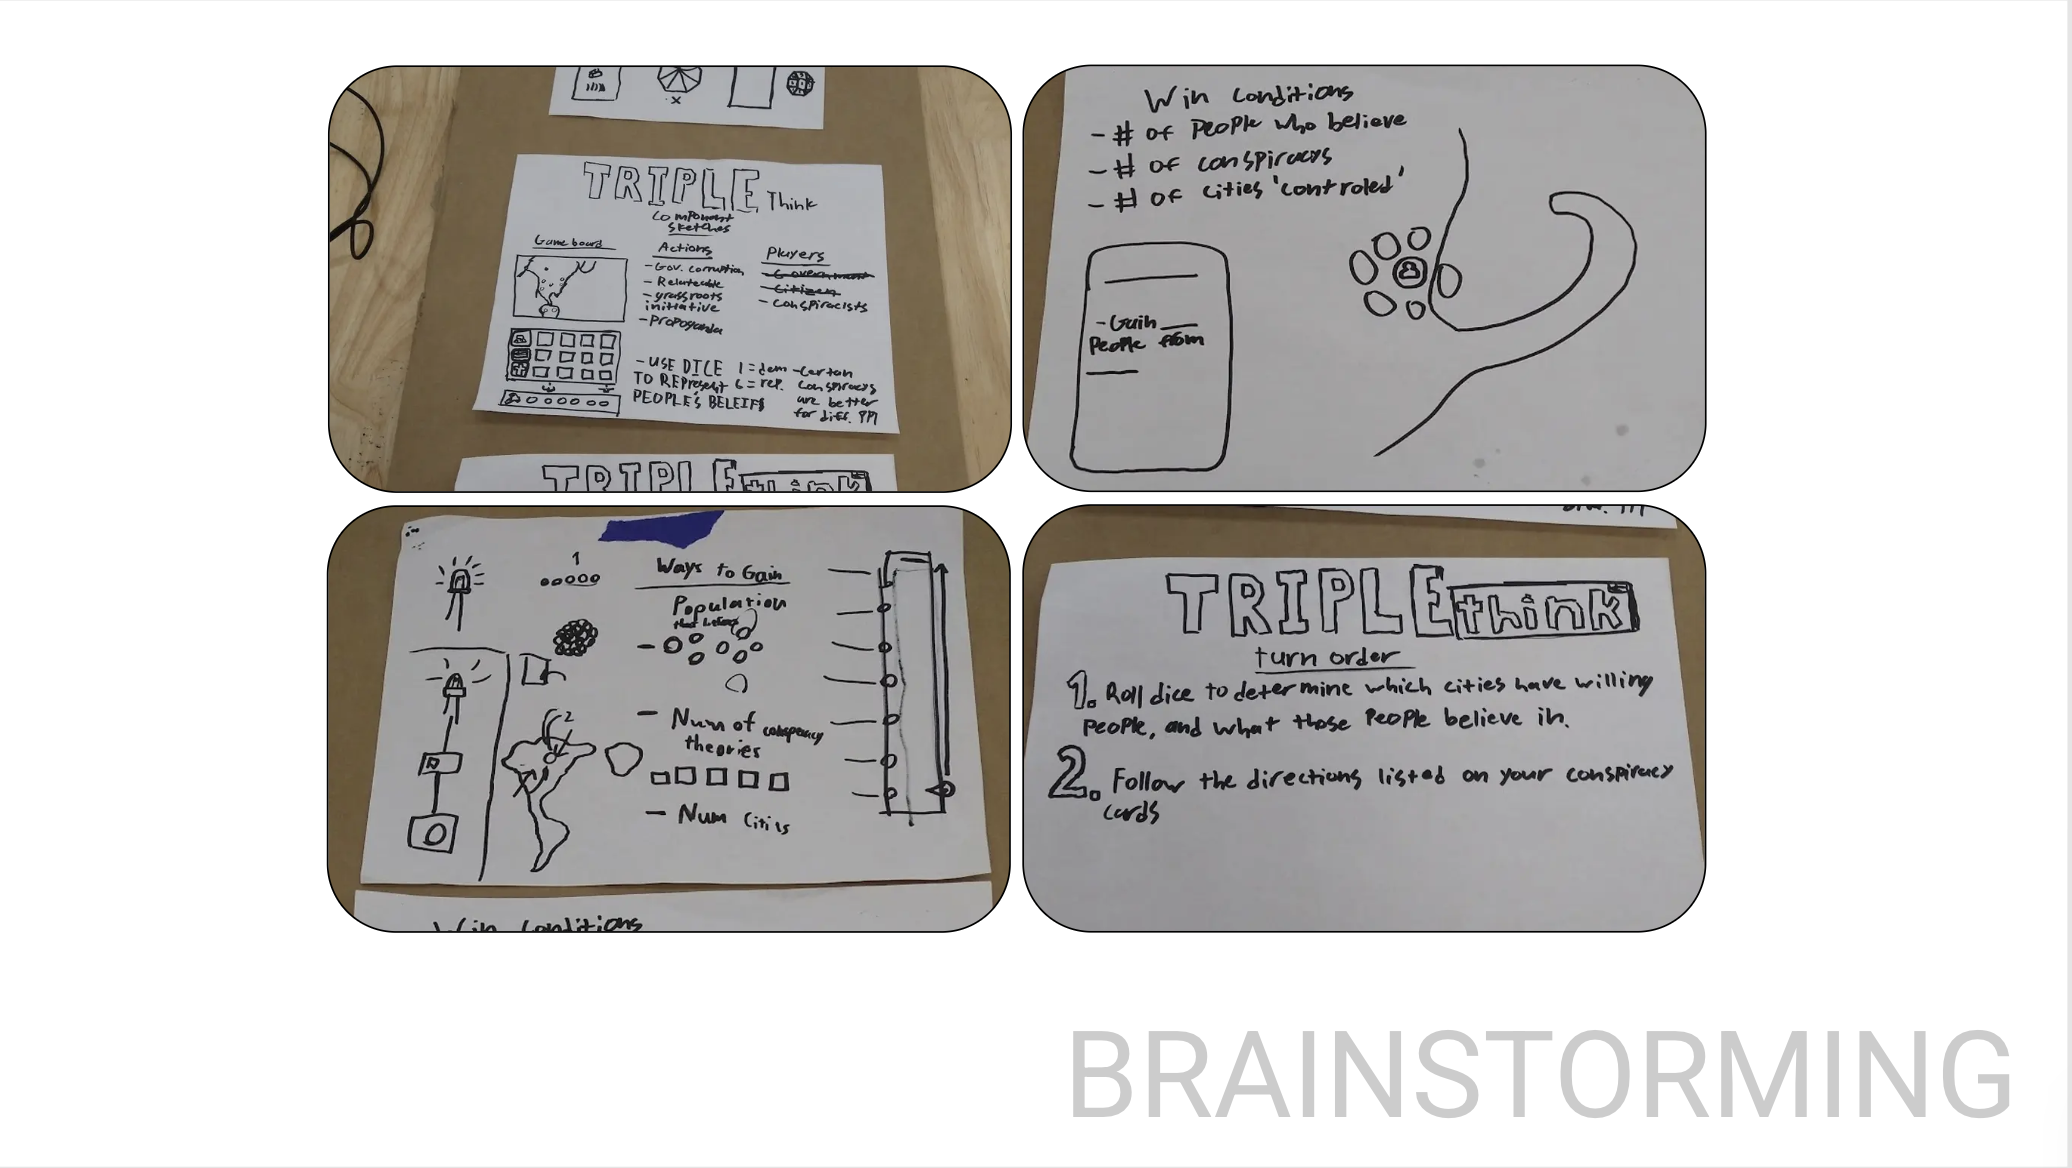 TRIPLE Think
component
sketches
Game board
Actions
- Gov. corruption
- Relateable
- grassroots
initiative
- Propoganda
Players
- Government
- Citizen
- Conspiracists
- USE DICE 1 = dem
TO REPresent 6 = rep.
PEOPLE'S BELEIFS
- Certan
conspiracys
are better
for diff. ppl
TRIPLE think
Win Conditions
- # of People who believe
- # of conspiracys
- # of cities 'controled'
- Gain ___
People from
1
Ways to Gain
Population
- Num of conspiracy
theories
- Num Cities
2
Win Conditions
diff. ppl
TRIPLE think
turn order
1. Roll dice to determine which cities have willing
People, and what those People believe in.
2. Follow the directions listed on your conspiracy
cards
BRAINSTORMING